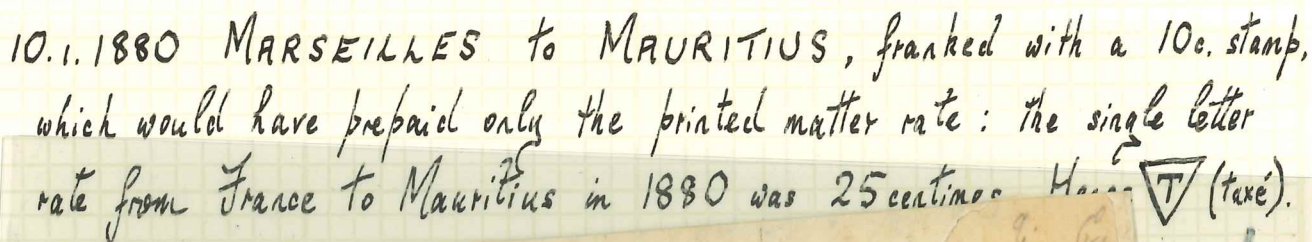 10.1.1880 MARSEILLES to MAURITIUS, franked with a 10c. stamp,
which would have prepaid only the printed matter rate: the single letter
rate from France to Mauritius in 1880 was 25 centimes. Hence T (taxé).